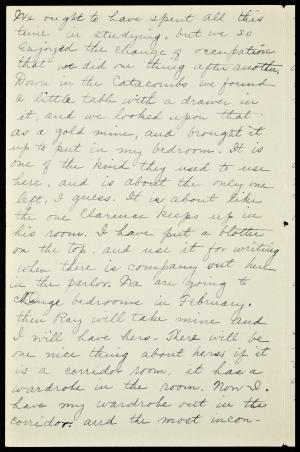 We ought to have spent all this
time in studying, but we so
enjoyed the change of occupation
that we did one thing after another.
Down in the Catacombs we found
a little table with a drawer in
it, and we looked upon that
as a gold mine, and brought it
up to put in my bedroom. It is
one of the kind they used to use
here, and is about the only one
left, I guess. It is about like
the one Clarence keeps up in
his room. I have put a blotter
on the top, and use it for writing
when there is company out here
in the parlor. We are going to
change bedrooms in February,
then Ray will take mine and
I will have hers. There will be
one nice thing about hers, if it
is a corridor room, it has a
wardrobe in the room. Now I
have my wardrobe out in the
corridor, and the most incon-